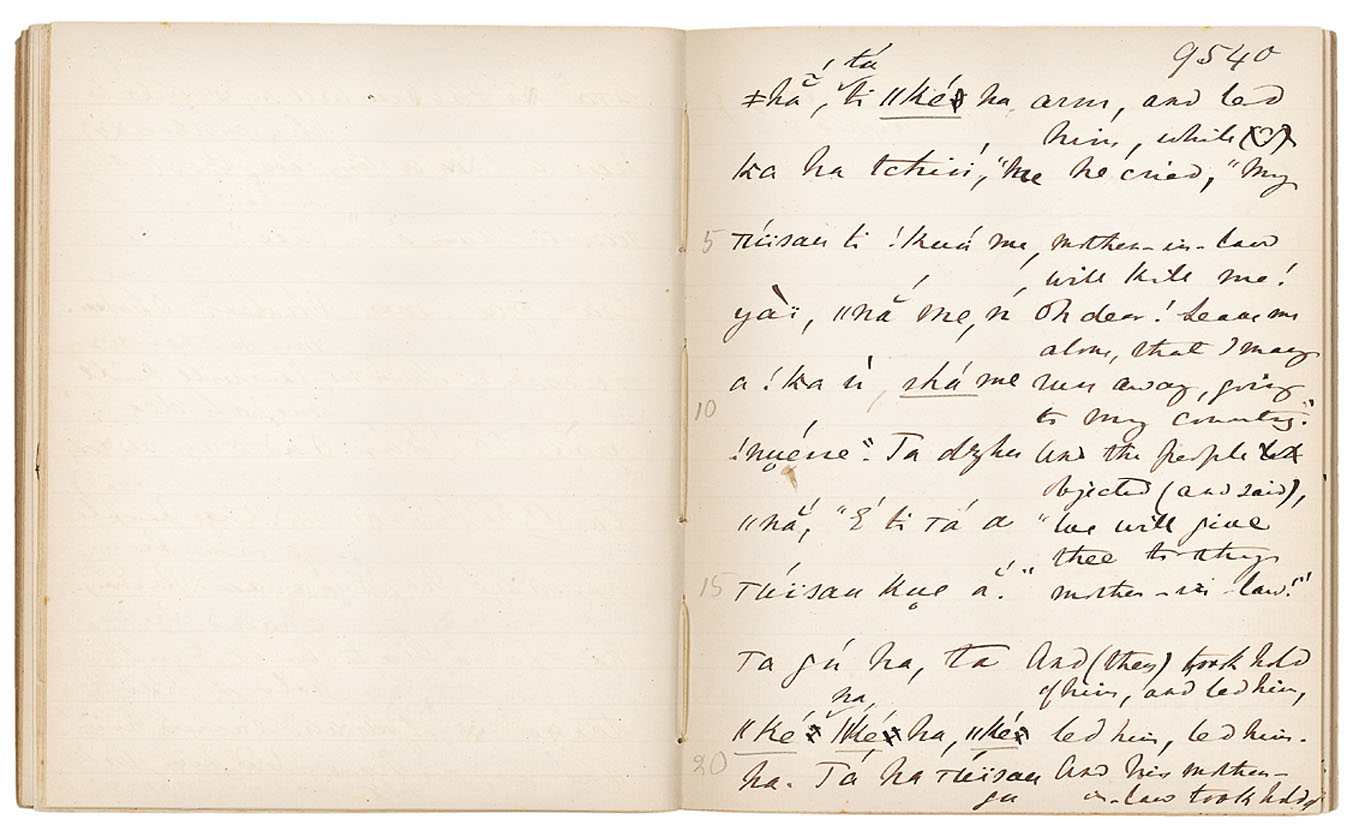 9540
tá
ǂhắ, ti ǁké ha arm, and led
him, while
ka ha tchíń, "me he cried, "My
5 túisau ti !kuá me, mother-in-law
will kill me!
yàï, ǁnắ me, ń Oh dear! Leave me
alone, that I may
a !ka ń, shá me run away, going
10 to my country."
!nuénne". Ta dzhu And the people
objected (and said),
ǁnắ, "É ti tá a "We will give
thee to thy
15 túisau kue ắ." mother-in-law!"
Ta gú ha, ta And (they) took hold
of him, and led him,
ha,
ǁké ǁké ha, ǁké led him, led him.
20 ha. Tá ha túisau And his mother-
gu in-law took hold of